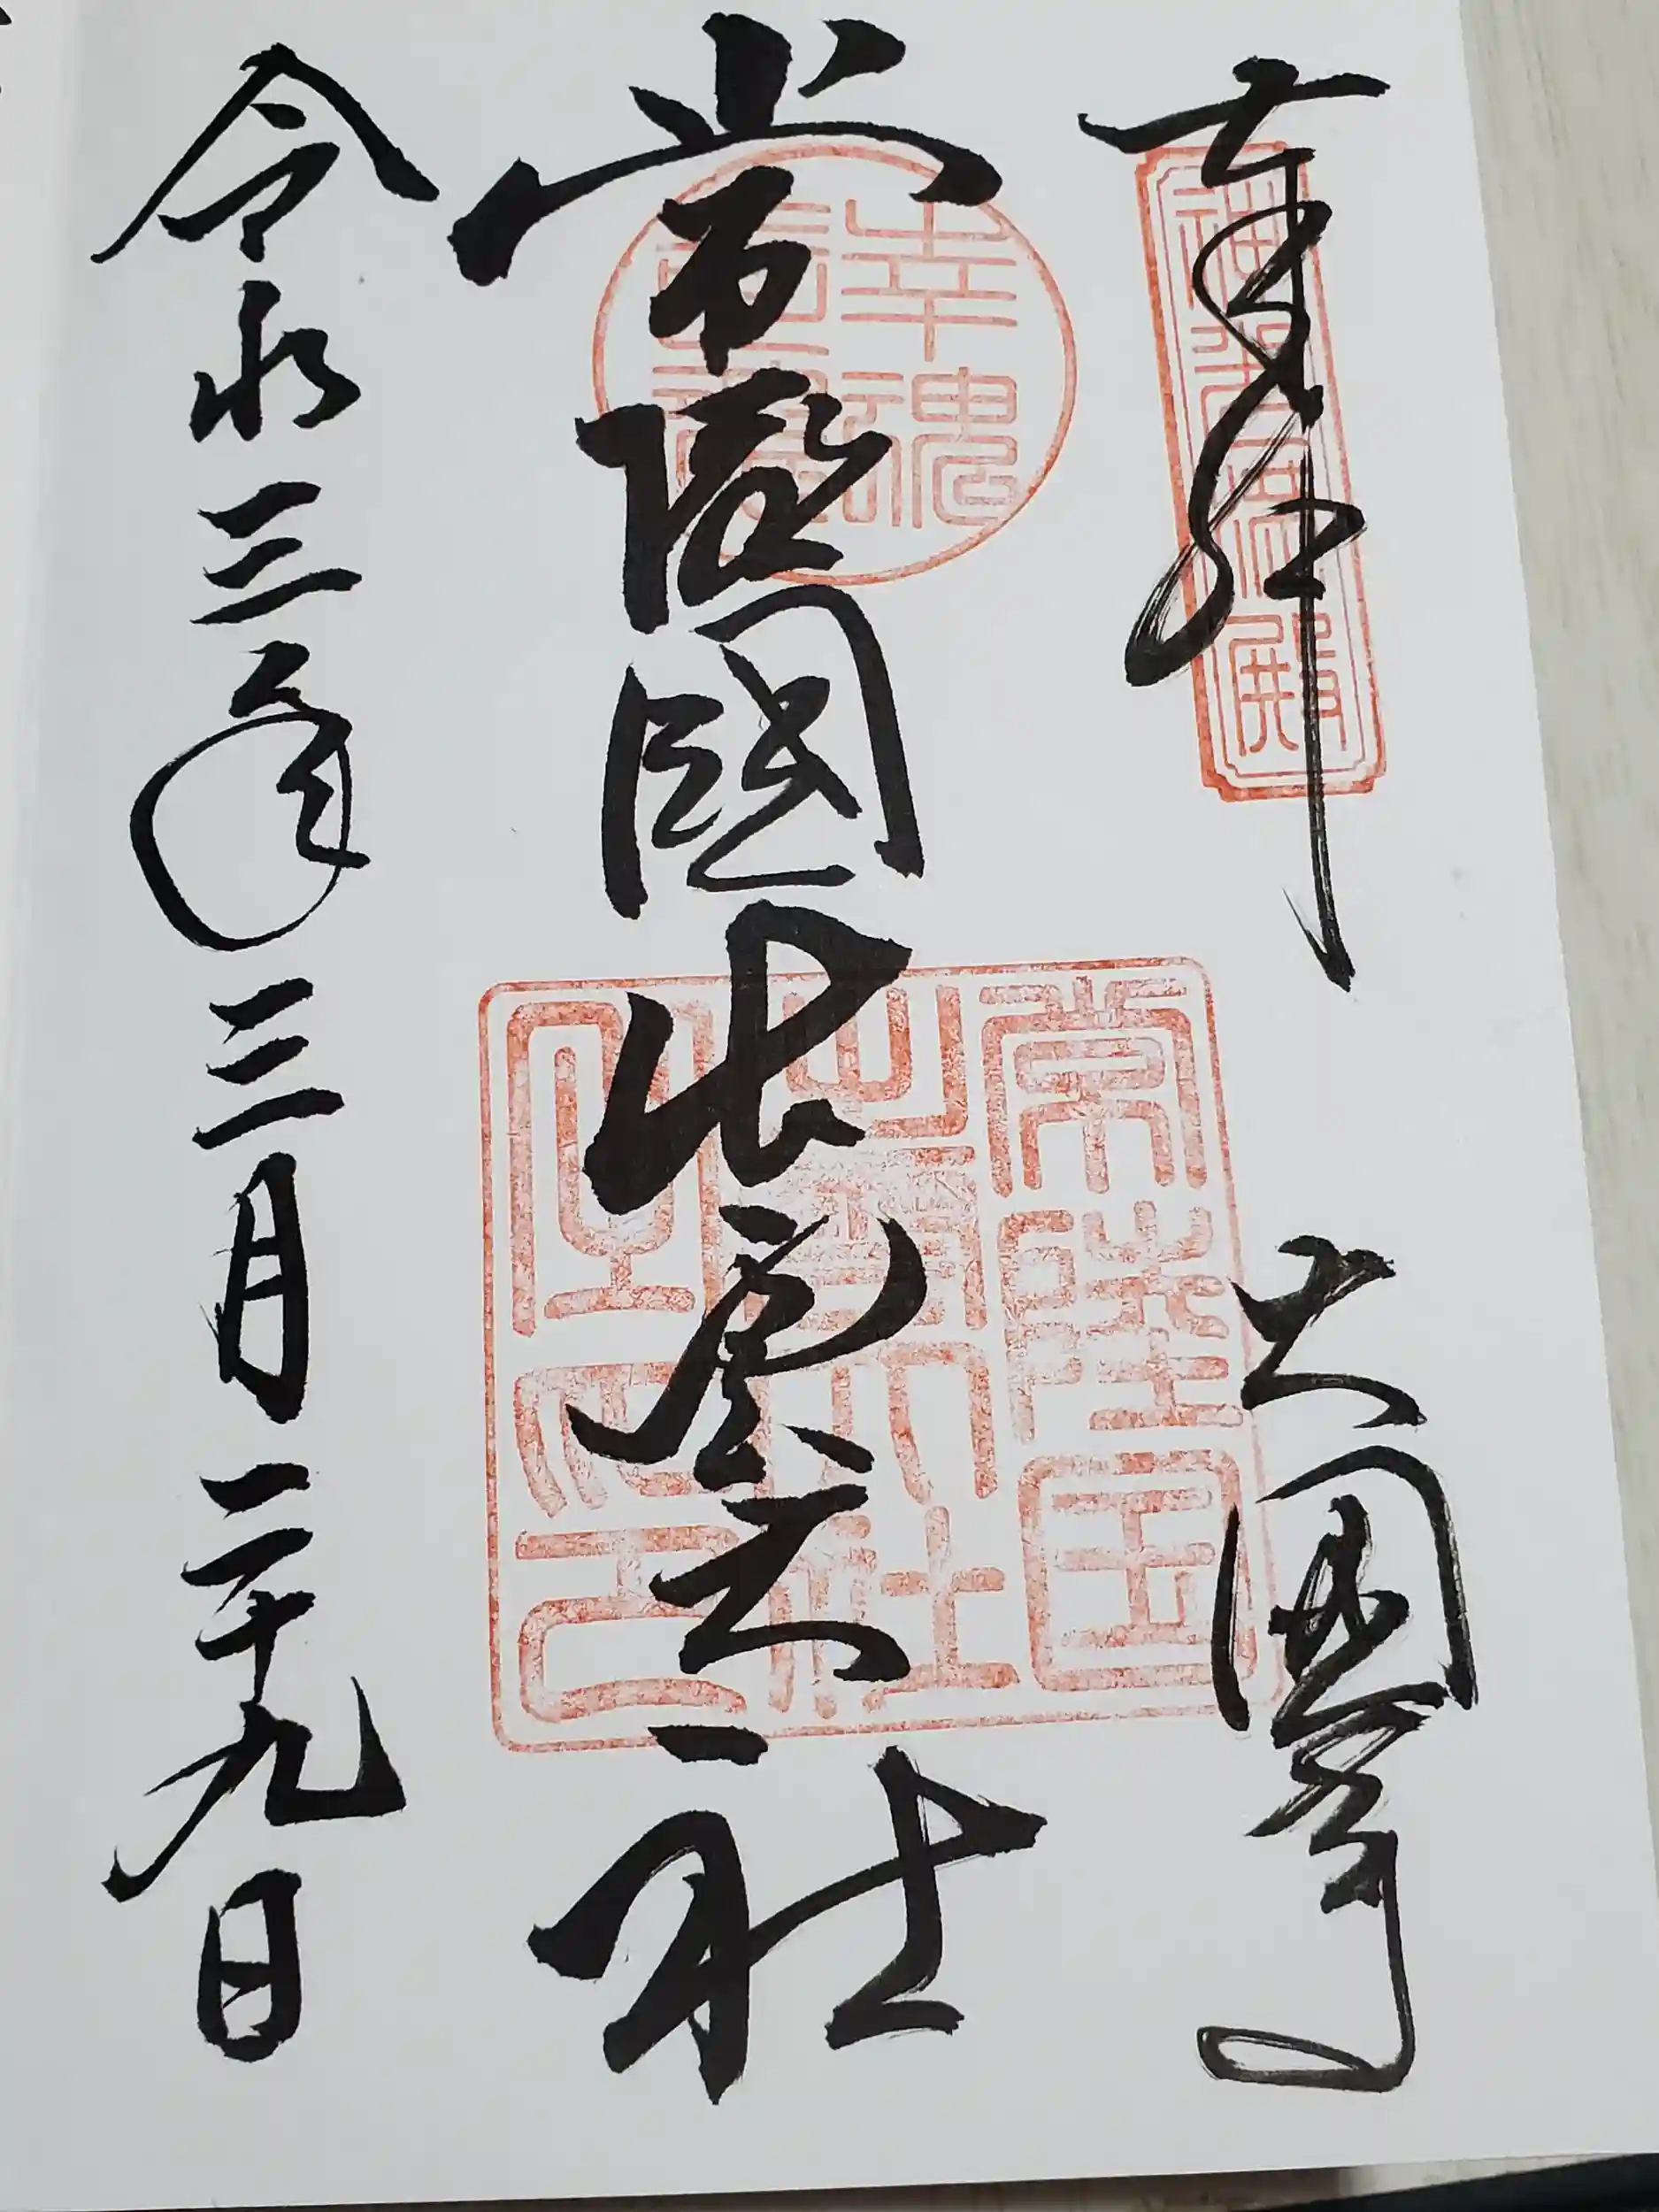 奉拝　大國
常陸國出雲大社
令和三年三月二十九日
幸魂
常陸国
出雲大社